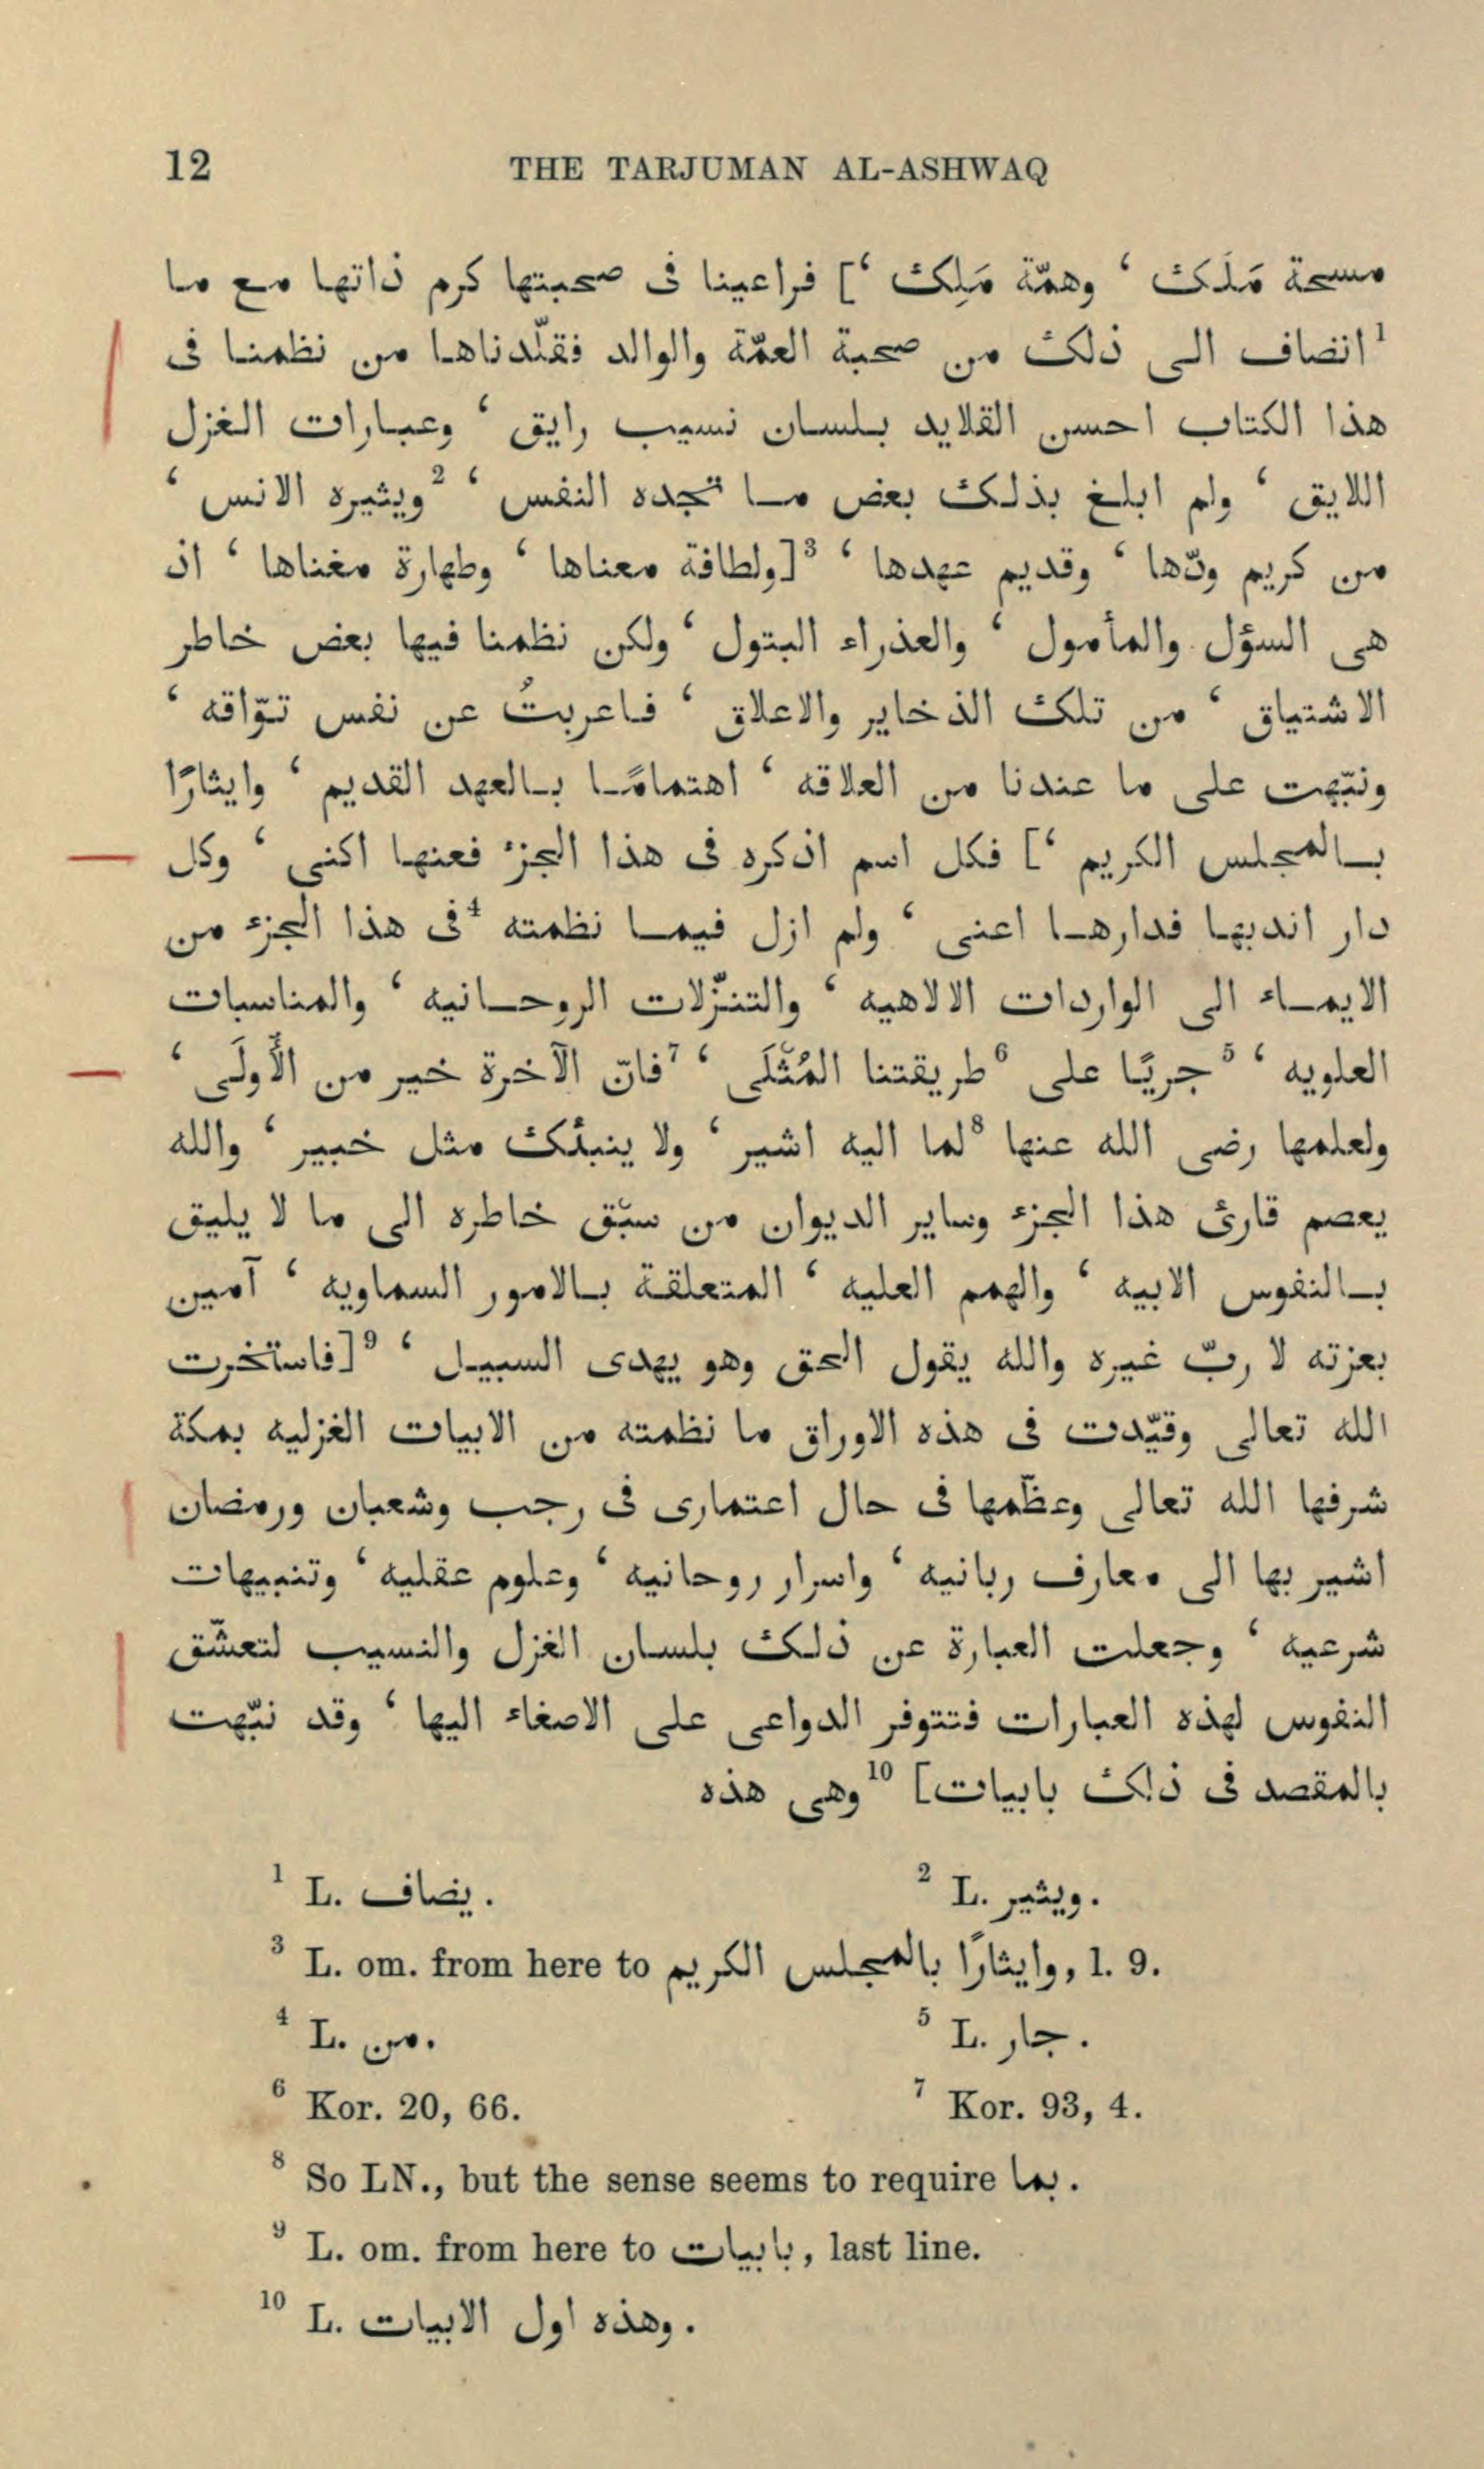 12 THE TARJUMAN AL-ASHWAQ
مسحة مَلَك ‘ وهمّة مَلِك ‘] فراعينا فى صحبتها كرم ذاتها مع ما
¹ انضاف الى ذلك من صحبة العمّة والوالد فقلّدناها من نظمنا فى
هذا الكتاب احسن القلايد بلسان نسيب رايق ‘ وعبارات الغزل
اللايق ‘ ولم ابلغ بذلك بعض ما تجده النفس ‘ ²ويثيره الانس ‘
من كريم ودّها ‘ وقديم عهدها ‘ ³[ولطافة معناها ‘ وطهارة مغناها ‘ اذ
هى السؤل والمأمول ‘ والعذراء البتول ‘ ولكن نظمنا فيها بعض خاطر
الاشتياق ‘ من تلك الذخاير والاعلاق ‘ فاعربتُ عن نفس توّاقه ‘
ونبّهت على ما عندنا من العلاقه ‘ اهتمامًا بالعهد القديم ‘ وايثارًا
بالمجلس الكريم ‘] فكل اسم اذكره فى هذا الجزء فعنها اكنى ‘ وكل
دار اندبها فدارها اعنى ‘ ولم ازل فيما نظمته ⁴فى هذا الجزء من
الايماء الى الواردات الالاهيه ‘ والتنزّلات الروحانيه ‘ والمناسبات
العلويه ‘ ⁵جريًا على ⁶طريقتنا المُثْلَى ‘ ⁷فانّ الآخرة خير من الأُولَى ‘
ولعلمها رضى الله عنها ⁸لما اليه اشير ‘ ولا ينبئك مثل خبير ‘ والله
يعصم قارئ هذا الجزء وساير الديوان من سبْق خاطره الى ما لا يليق
بالنفوس الابيه ‘ والهمم العليه ‘ المتعلقة بالامور السماويه ‘ آمين
بعزته لا ربّ غيره والله يقول الحق وهو يهدى السبيل ‘ ⁹[فاستخرت
الله تعالى وقيّدت فى هذه الاوراق ما نظمته من الابيات الغزليه بمكة
شرفها الله تعالى وعظّمها فى حال اعتمارى فى رجب وشعبان ورمضان
اشير بها الى معارف ربانيه ‘ واسرار روحانيه ‘ وعلوم عقليه ‘ وتنبيهات
شرعيه ‘ وجعلت العبارة عن ذلك بلسان الغزل والنسيب لتعشّق
النفوس لهذه العبارات فتتوفر الدواعى على الاصغاء اليها ‘ وقد نبّهت
بالمقصد فى ذلك بابيات] ¹⁰وهى هذه
¹ L. يضاف. ² L. ويثير.
³ L. om. from here to وايثارًا بالمجلس الكريم, l. 9.
⁴ L. من. ⁵ L. جار.
⁶ Kor. 20, 66. ⁷ Kor. 93, 4.
⁸ So LN., but the sense seems to require بما.
⁹ L. om. from here to بابيات, last line.
¹⁰ L. وهذه اول الابيات.